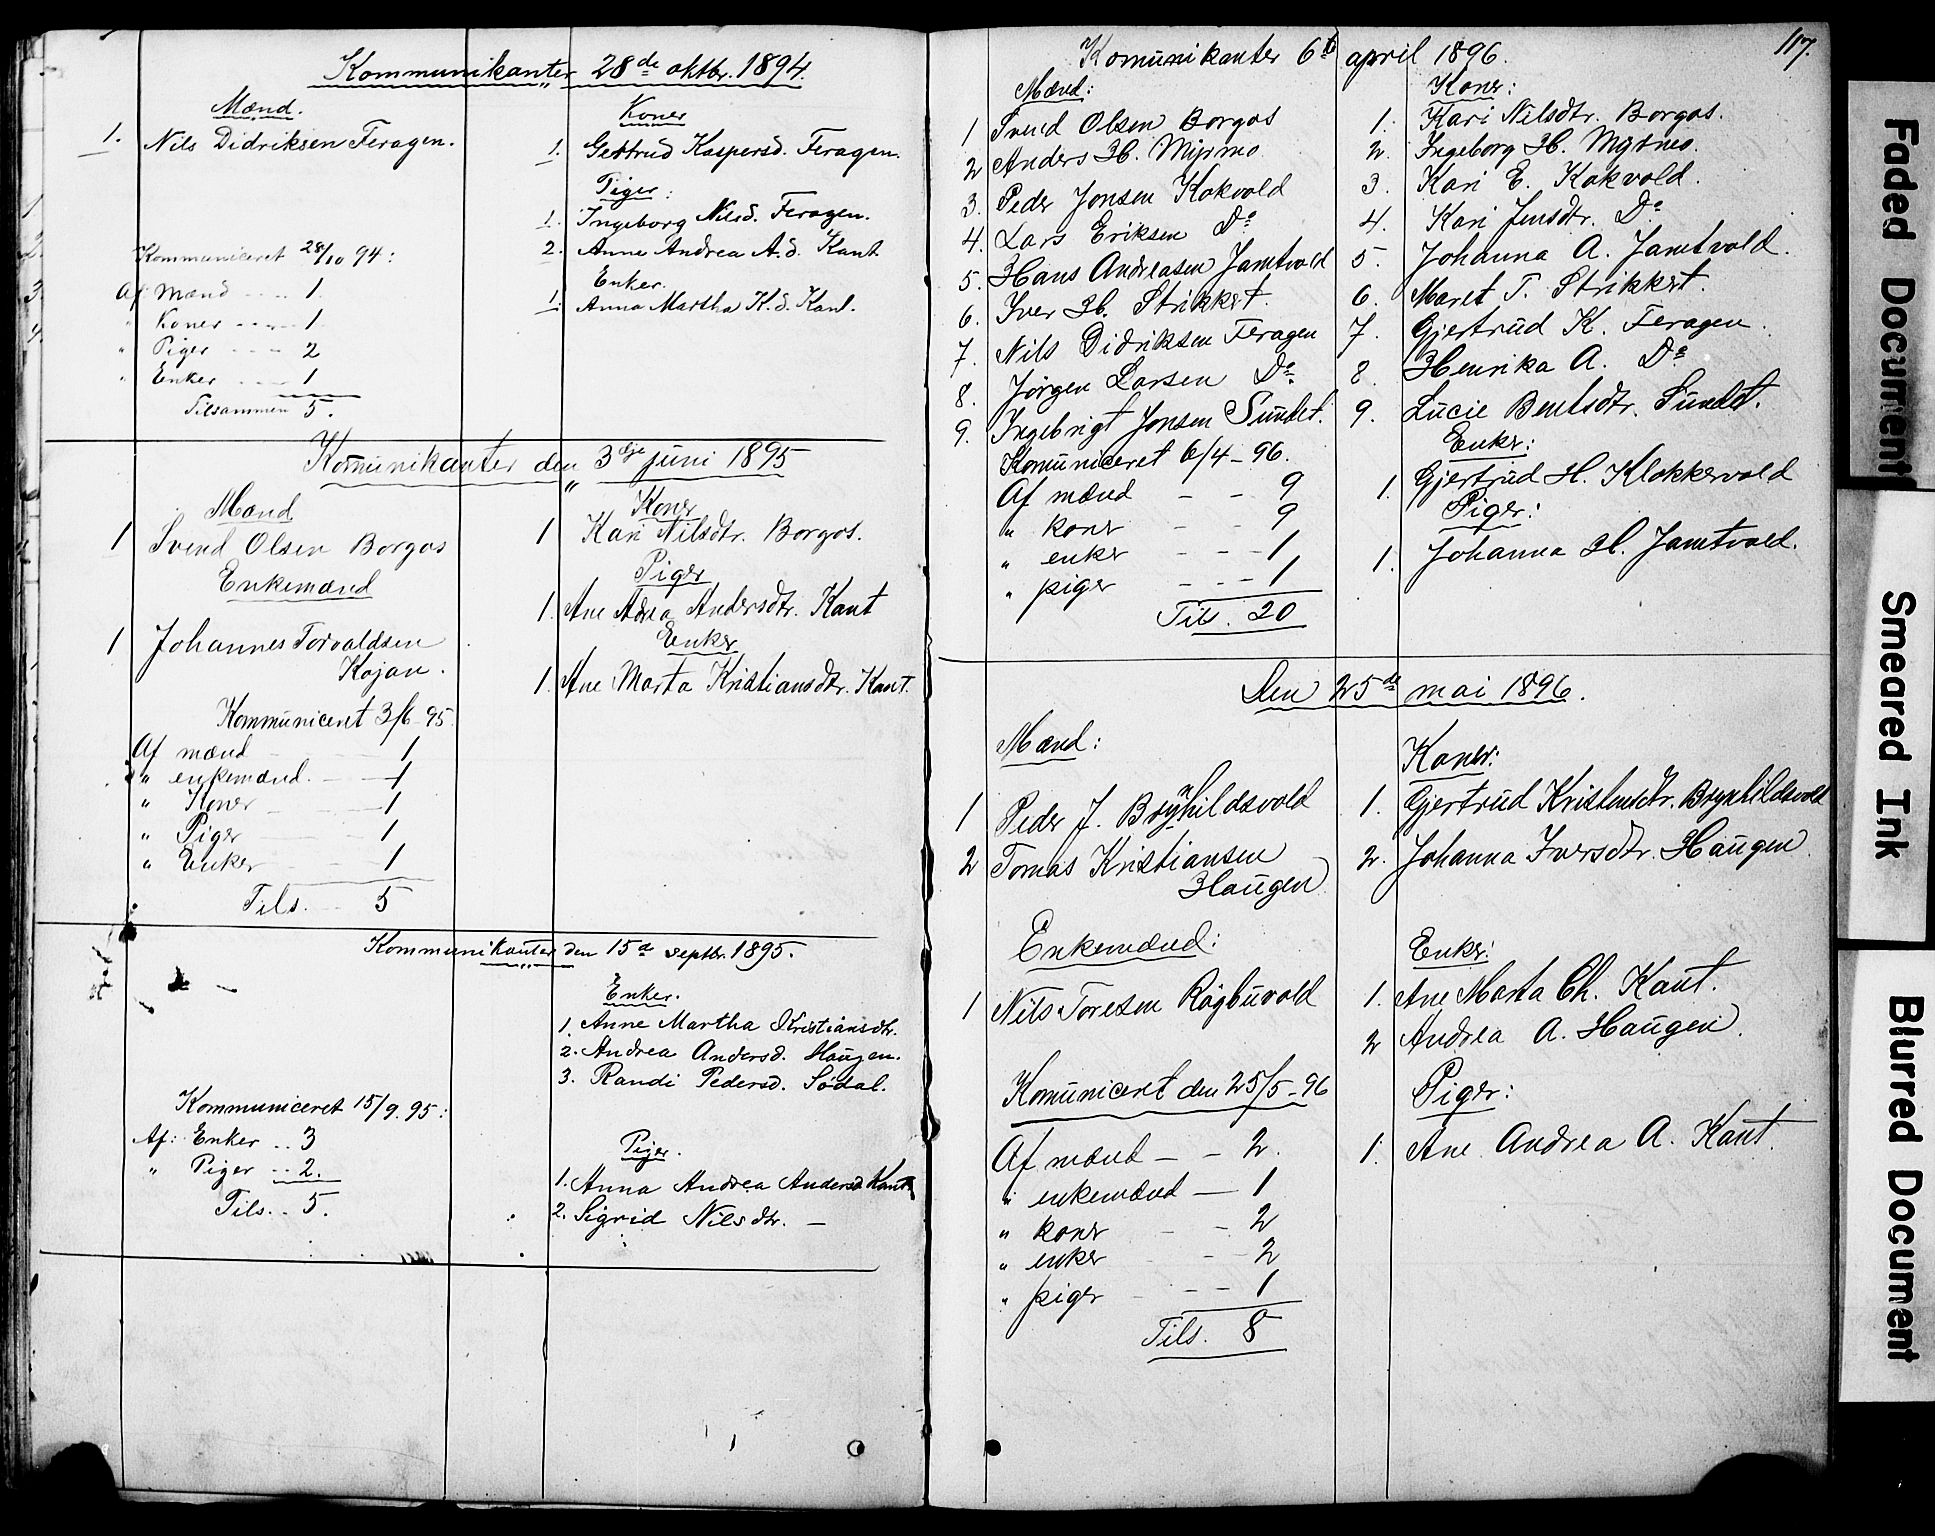 Kommunikanter 28de oktbr. 1894.
Mænd.
1. Nils Didriksen Feragen.
Kommuniceret 28/10 94:
Af Mænd - - - - 1
" Koner - - - - 1
" Piger - - - 2
" Enker - - - - 1
Tilsammen 5.
Koner
1. Gertrud Kaspersd. Feragen.
Piger:
1. Ingeborg Nilsd. Feragen.
2. Anne Andrea A.d. Kant
Enker.
1. Anna Martha K.d. Kant.
Komunikanter den 3dje juni 1895
Mænd
1 Svend Olsen Borgos
Enkemænd
1 Johannes Torvaldsen
Kojan.
Kommuniceret 3/6 95
Af mænd - - 1
" enkemænd. - - 1
" Koner - - 1
" Piger - - 1
" Enker - - 1
Tils. - 5
Koner
1 Kari Nilsdtr. Borgos.
Piger
1. Ane Adrea Andersdtr. Kant
Enker
1. Ane Marta Kristiansdtr. Kant.
Kommunikanter den 15de septbr. 1895.
Enker.
1. Anne Martha Kristiansdtr.
2. Andrea Andersd. Haugen.
3. Randi Pedersd. Sødal.
Kommuniceret 15/9. 95:
Af: Enker .. 3
" Piger .. 2.
Tils. . 5.
Piger.
1. Anna Andrea Andersd Kant
2. Sigrid Nilsdtr. —
117.
Komunikanter 6te april 1896.
Mænd:
1 Svend Olsen Borgos
2 Anders H. Myrmo
3. Peder Jonsen Kokvold
4. Lars Eriksen Do
5. Hans Andreasen Jamtvold
6. Iver H. Strikkert
7. Nils Didriksen Feragen
8. Jørgen Larsen Do.
9. Ingebrigt Jonsen Sundet.
Komuniceret 6/4 - 96.
Af mænd - - 9
" koner - - 9
" enker - - - 1
" piger - - - 1
Til. 20
Koner:
1. Kari Nilsdtr. Borgos.
2. Ingeborg H. Myrmo.
3. Kari E. Kokvold.
4. Kari Jensdtr. Do
5. Johanna A. Jamtvold.
6. Maret T. Strikkert.
7. Gjertrud K. Feragen.
8. Henrika A. Do
9. Lucie Bentsdtr. Sundet.
Enker:
1. Gjertrud H. Klokkervold
Piger:
1. Johanna H. Jamtvold.
Den 25de mai 1896.
Mænd:
1 Peder J. Brynhildsvold
2 Tomas Kristiansen
Haugen
Enkemænd:
1 Nils Toresen Rögbuvold
Komuniceret den 25/5 - 96
Af mænd - - 2.
" enkemænd - 1
" koner - 2
" enker - - 2
" piger - - - 1
Tils. 8
Koner:
1. Gjertrud Kristensdtr. Brynhildsvold
2. Johanna Iversdtr. Haugen
Enker:
1. Ane Marta Ch. Kant.
2 Andrea A. Haugen.
Piger:
1. Ane Andrea A. Kant.
Faded Document
Smeared Ink
Blurred Document